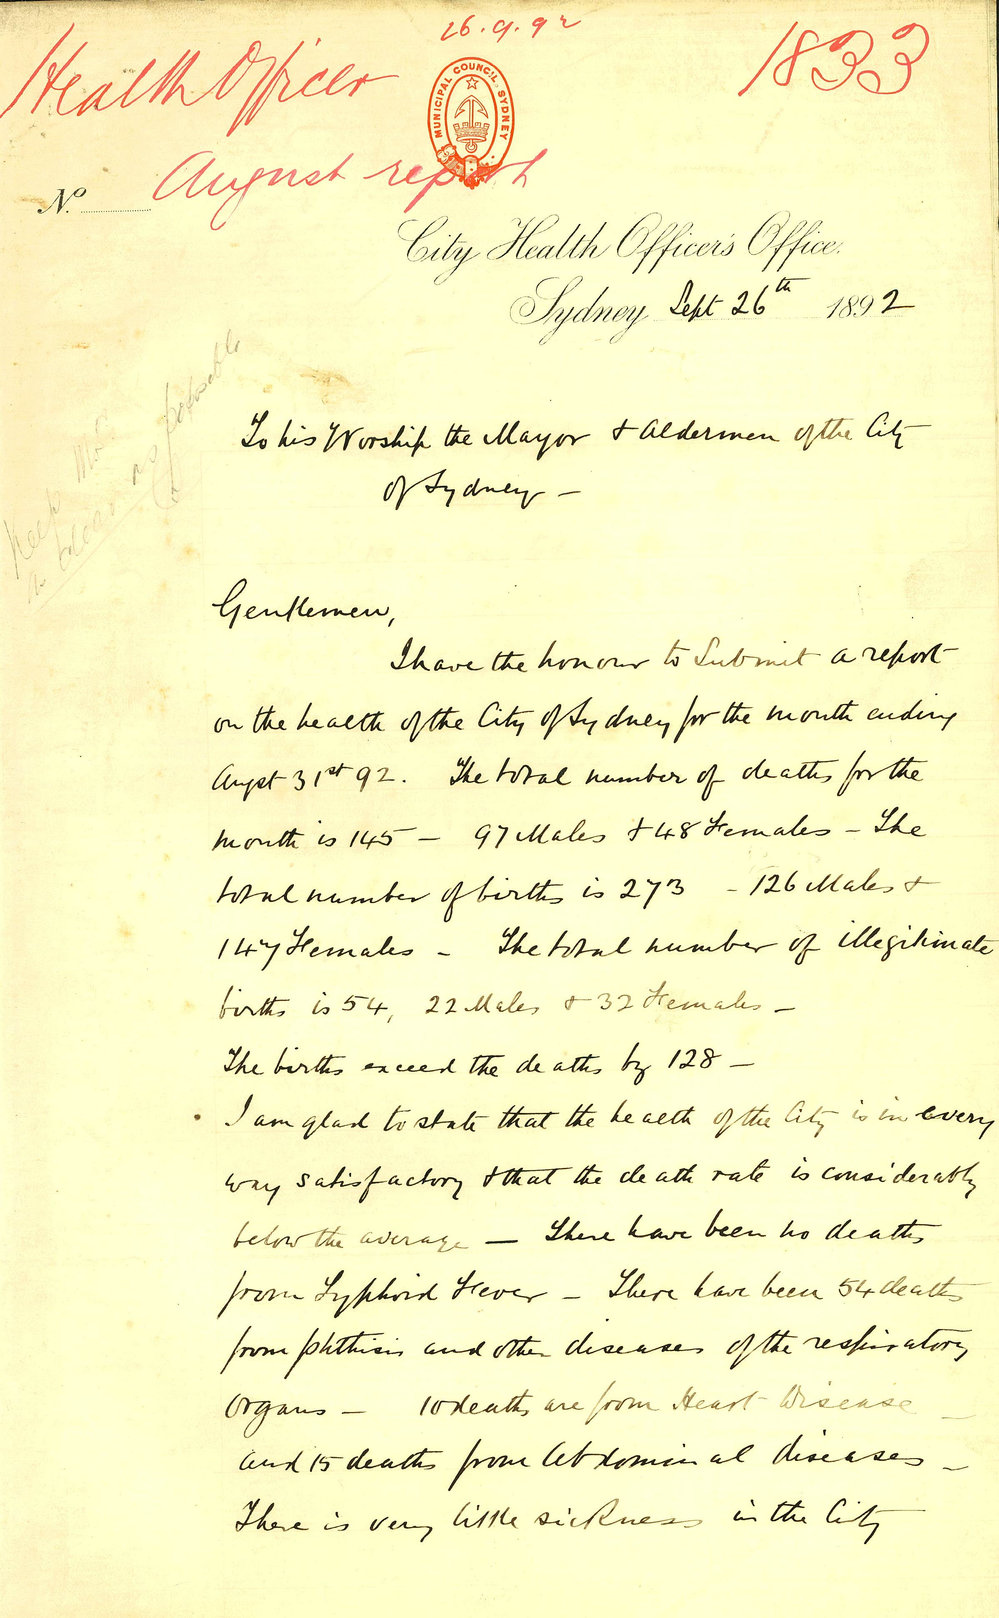 26.9.92
Health Officer
1833
MUNICIPAL COUNCIL. SYDNEY
August report
No.
City Health Officer's Office.
Sydney Sept 26th 1892
Keep
as possible
To his Worship the Mayor & Aldermen of the City
of Sydney —
Gentlemen,
I have the honour to Submit a report
on the health of the City of Sydney for the month ending
Augst 31st 92. The total number of deaths for the
month is 145 — 97 Males & 48 Females — The
total number of births is 273 - 126 Males &
147 Females — The total number of illegitimate
births is 54, 22 Males & 32 Females —
The births exceed the deaths by 128 —
I am glad to state that the health of the City is in every
way satisfactory & that the death rate is considerably
below the average — There have been no deaths
from Typhoid Fever — There have been 54 deaths
from phthisis and other diseases of the respiratory
organs — 10 deaths are from Heart Disease —
and 15 deaths from Abdominal diseases —
There is very little sickness in the City